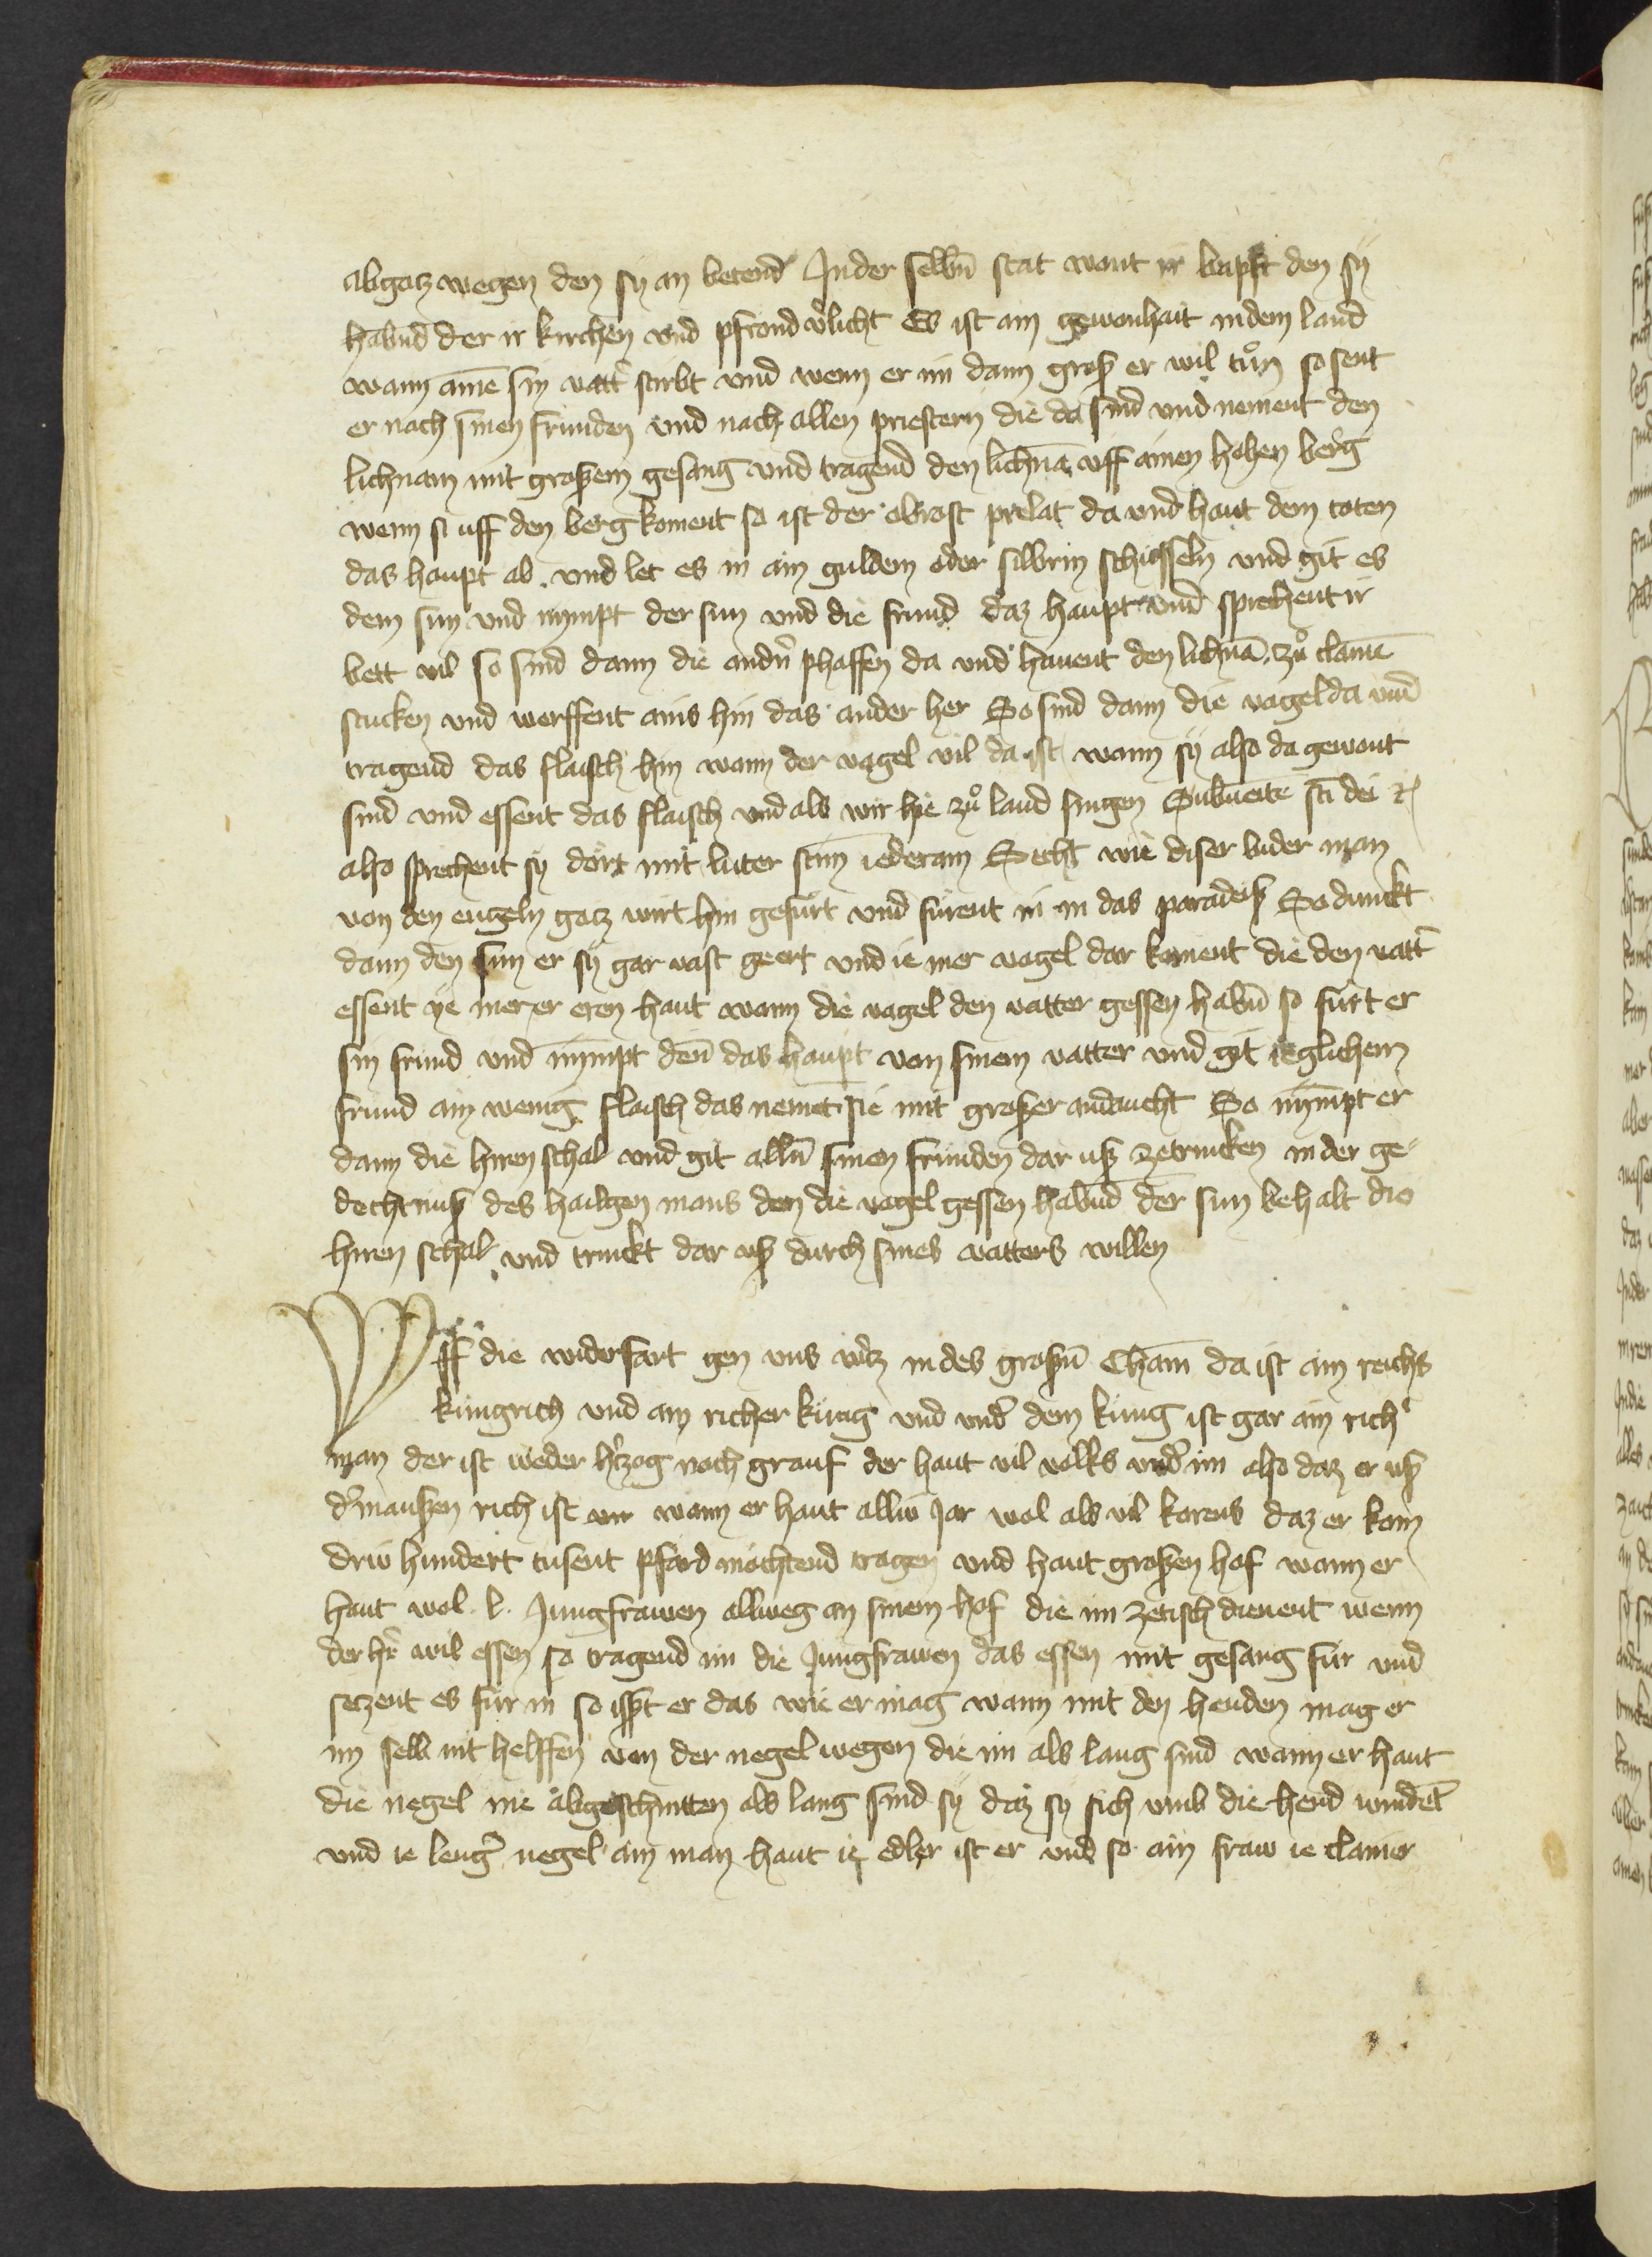 abgotz wegen den sy an betend In der selbñ stat wont ir bapst den sy
habñd der ir kirchen vnd pfrond v̾licht Es ist ain gewonhait in dem land
wann aim̄e sin vatt̾ stirbt vnd wenn er im dann groß er wil tůn so sent
er nach sinen frunden vnd nach allen priestern die da sind vnd nement den
lichnam mit großem gesang vnd tragend den lichnā vff ainen hohen berg
wenn si uff den berg koment so ist der obrost prelat da vnd haut dem toten
das haupt ab vnd let es in ain guldem oder silbrin schüsseln vnd git es
dem sun vnd nympt der sun vnd die frund daz haupt vnd sprechent ir
bett vil so sind dann die andn̾ phaffen da vnd hauent den lichnā zů clainē
stucken vnd werffent ains hin das ander her So sind dann die vogel da vnd
tragend das flaisch hin wann der vogel vil da ist wann sy also da gewont
sind vnd essent das flaisch vnd als wir hie zů land singen Subueite scī dei ⁊c
also sprechent sy dort mit luter stim iederman Secht wie diser bider man
von den engeln gotz wirt hin gefürt vnd fürent in in das paradiß So dunckt
dann den sun er sy gar vast geert vnd ie mer vogel dar koment die den vatt̾
essent ye mer er eren haut wann die vogel den vatter gessen habñ so fürt er
sin frund vnd nympt den̄ das haupt von sinem vatter vnd git ieglichem
frund ain wenig flaisch das nemet sie mit großer andaucht So nympt er
dann die hiren schal vnd git alln̄ sinen frunden dar uß ze trincken in der ge-
dechtnuß des hailgen mans den die vogel gessen habñd der sun behalt die
hiren schal vnd trinckt dar uß durch sines vatters willen
Vff die widerfart gen vns v̾tz in des großn̄ Cham̄ da ist ain reichs
küngrich vnd ain richer kung vnd vnd̾ dem kung ist gar ain rich̾
man der ist weder h̾tzog noch grauf der haut vil volks vnd̾ im also daz er uß
d̾ maußen rich ist wann er haut alliu Jar wol als vil korens daz er kom
driu hundert tusent pfärd möchtend tragen vnd haut großen hof wann er
haut wol .l. Jungfrawen allweg an sinem hof die im ze tisch dienent wenn
der h̾r wil essen so tragend im die Jungfrawen das essen mit gesang für vnd
setzent es für in so ißt er das wie er mag wann mit den henden mag er
im selb nit helffen von der negel wegen die im als lang sind wann er haut
die negel nie abgeschnitten als lang sind sy daz sy sich vmb die hend windet
vnd ie leng̾ negel ain man haut ie edler ist er vnd so ain fraw ie clainer